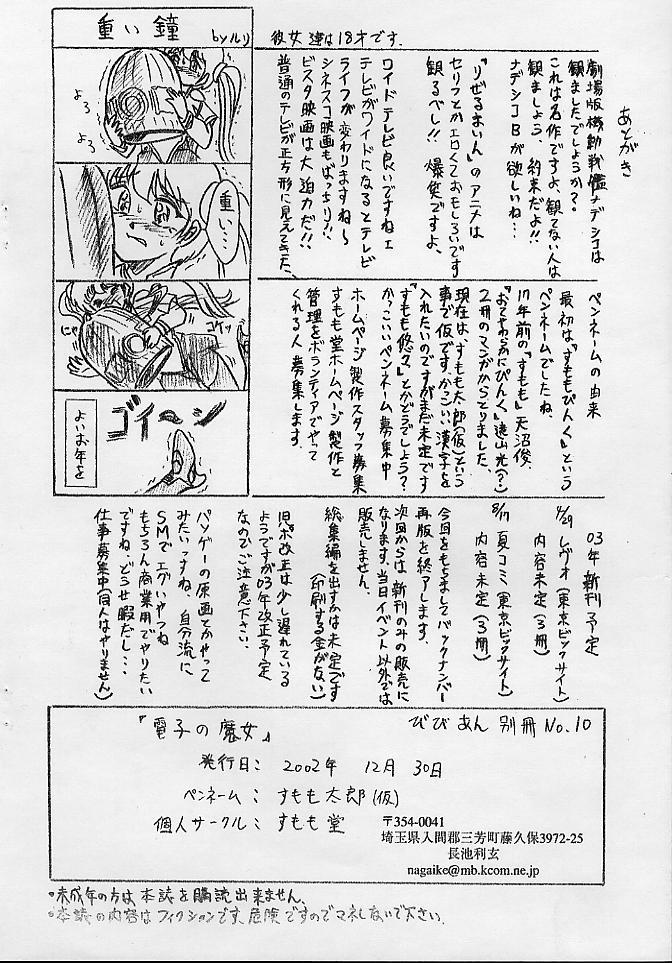 重い鐘
byルリ
よろ
よろ
重い…
にゃ
コケッ
ゴイ〜ン
よいお年を
彼女達は18才です.
あとがき
劇場版機動戦艦ナデシコは
観ましたでしょうか?
これは名作ですよ、観てない人は
観ましょう、約束だよ!!
ナデシコBが欲しいね…
『りぜるまいん』のアニメは
セリフとかエロくておもしろいです
観るべし!!爆笑ですよ、
ワイドテレビ良いですねェ
テレビがワイドになるとテレビ
ライフが変わりますね〜
シネスコ映画もばっちり!!
ビスタ映画は大迫力だ!!
普通のテレビが正方形に見えてきた、
ペンネームの由来
最初は『すももぴんく』という
ペンネームでしたね、
17年前の『すもも』天沼俊、
『おてやわらかにぴんく』遠山光(?)
2冊のマンガからとりました、
現在は、すもも太郎(仮)という
事で仮です、かっこいい漢字を
入れたいのですがまだ未定です
『すもも悠々』とかどうでしょう?
かっこいいペンネーム募集中
ホームページ製作スタッフ募集
すもも堂ホームページ製作と
管理をボランティアでやって
くれる人募集します.
03年新刊予定
4/29 レヴォ(東京ビックサイト)
内容未定(3冊)
8/17 夏コミ(東京ビックサイト)
内容未定(3冊)
今回をもちましてバックナンバー
再版を終了します.
次回からは、新刊のみの販売に
なります.当日イベント以外では
販売しません.
総集編を出すかは未定です
(印刷する金がない)
旧ポ改正は少し遅れている
ようですが03年改正予定
なのでご注意下さい.
パソゲーの原画とかやって
みたいっすね、自分流に
SMでエグいやつね
もちろん商業用でやりたい
ですね、どうせ暇だし…
仕事募集中(同人はやりません)
『電子の魔女』
びびあん別冊 No.10
発行日: 2002年 12月 30日
ペンネーム: すもも太郎(仮)
個人サークル: すもも堂
〒354-0041
埼玉県入間郡三芳町藤久保3972-25
長池利玄
nagaike@mb.kcom.ne.jp
・未成年の方は、本誌を購読出来ません.
・本誌の内容はフィクションです、危険ですのでマネしないで下さい.